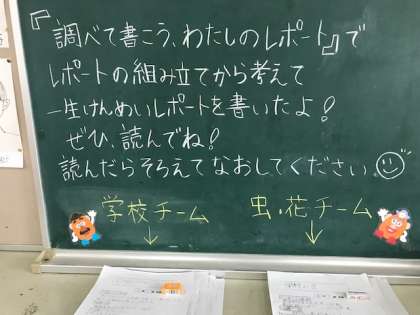 『調べて書こう、わたしのレポート』で
レポートの組み立てから考えて
一生けんめいレポートを書いたよ！
ぜひ、読んでね！
読んだらそろえてなおしてください。
学校チーム
虫・花チーム